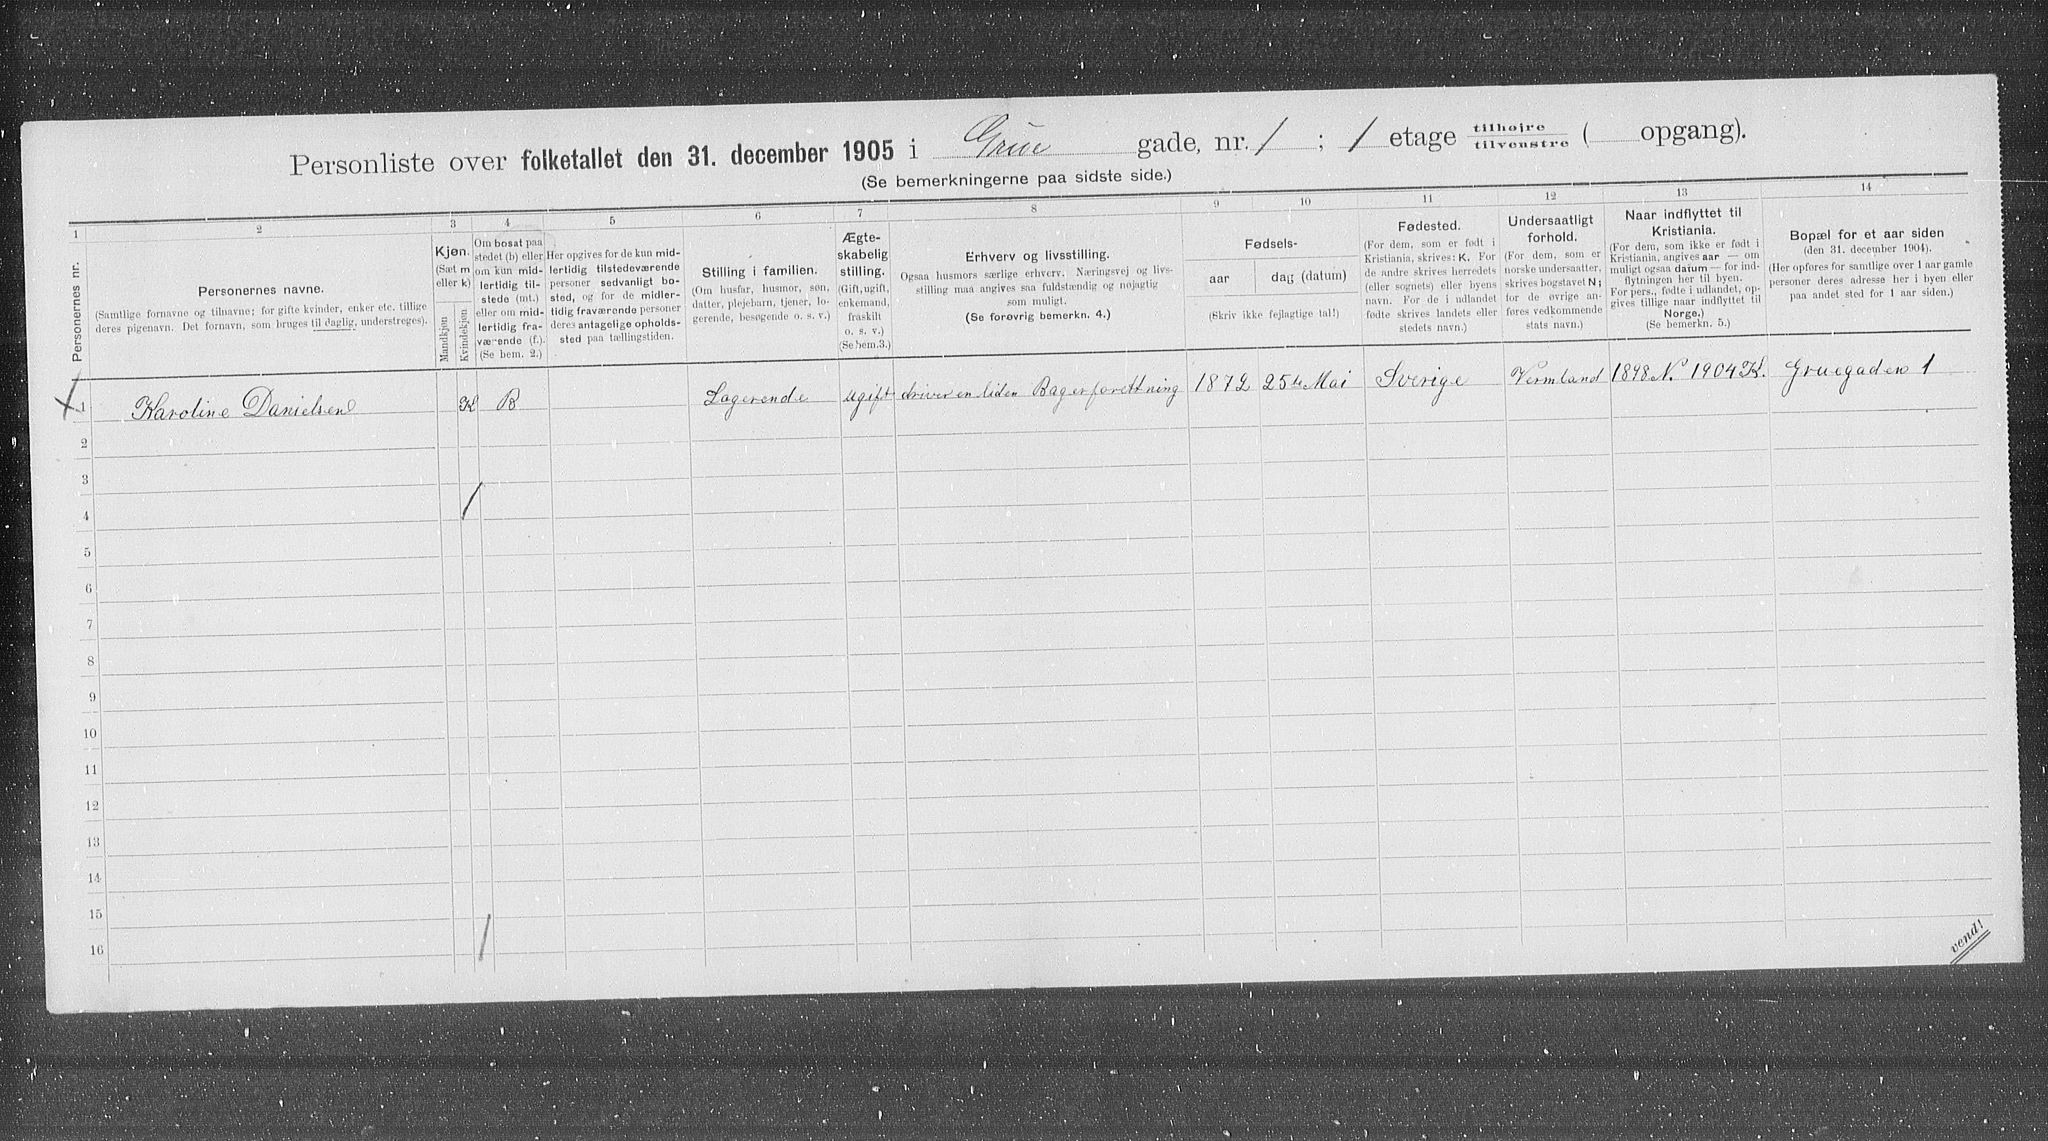 Personliste over folketallet den 31. december 1905 i Grüe gade, nr. 1 ; 1 etage tilhøjre tilvenstre ( opgang).
(Se bemerkningerne paa sidste side.)
1 2 3 4 5 6 7 8 9 10 11 12 13 14
Personernes nr.
Personernes navne.
(Samtlige fornavne og tilnavne; for gifte kvinder, enker etc. tillige
deres pigenavn. Det fornavn, som bruges til daglig, understreges).
Kjøn.
(Sæt m
eller k)
Mandkjøn
Kvindekjøn
Om bosat paa
stedet (b) eller
om kun mid-
lertidig til-
stede (mt.)
eller om mid-
lertidig fra-
værende (f.).
(Se bem. 2.)
Her opgives for de kun mid-
lertidig tilstedeværende
personer sedvanlig bo-
sted, og for de midler-
tidig fraværende personer
deres antagelige opholds-
sted paa tællingstiden.
Stilling i familien.
(Om husfar, husmor, søn,
datter, plejebarn, tjener, lo-
gerende, besøgende o. s. v.)
Ægte-
skabelig
stilling.
(Gift, ugift,
enkemand,
fraskilt
o. s. v.)
(Se bem.3.)
Erhverv og livsstilling.
Ogsaa husmors særlige erhverv. Næringsvej og livs-
stilling maa angives saa fuldstændig og nøjagtig
som muligt.
(Se forøvrig bemerkn. 4.)
Fødsels-
aar dag (datum)
(Skriv ikke fejlagtige tal!)
Fødested.
(For dem, som er født i
Kristiania, skrives: K. For
de andre skrives herredets
(eller sognets) eller byens
navn. For de i udlandet
fødte skrives landets eller
stedets navn.)
Undersaatligt
forhold.
(For dem, som er
norske undersaatter,
skrives bogstavet N;
for de øvrige an-
føres vedkommende
stats navn.)
Naar indflyttet til
Kristiania.
(For dem, som ikke er født i
Kristiania, angives aar — om
muligt ogsaa datum — for ind-
flytningen her til byen.
For pers., fødte i udlandet, op-
gives tillige naar indflyttet til
Norge.)
(Se bemerkn. 5.)
Bopæl for et aar siden
(den 31. december 1904).
(Her opføres for samtlige over 1 aar gamle
personer deres adresse her i byen eller
paa andet sted for 1 aar siden.)
1 Karoline Danielsen K B Logerende ugift driver en liden Bagerforettning 1872 25de Mai Sverige Vermland 1898 N. 1904 K. Gruegaden 1
2
3
4
5
6
7
8
9
10
11
12
13
14
15
16
vend!